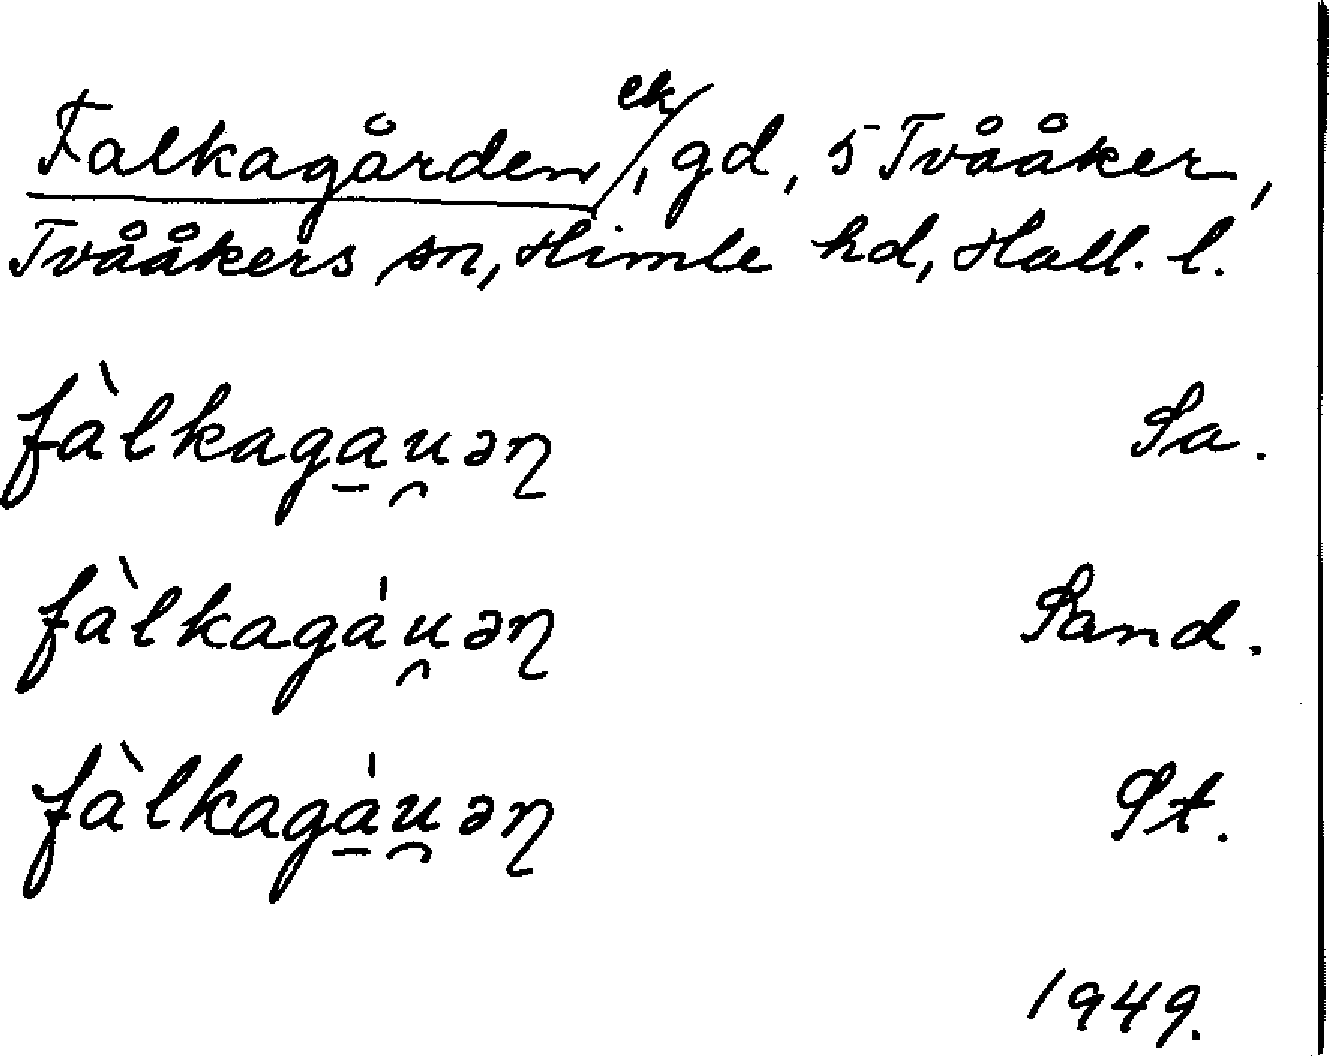 Falkagården ek/, gd, 5 Tvååker,
Tvååkers sn, Himle hd, Hall. l.
fàlkaga̱u̯əꞃ Sa.
fàlkagáu̯əꞃ Sand.
fàlkagá̱u̯əꞃ St.
1949.